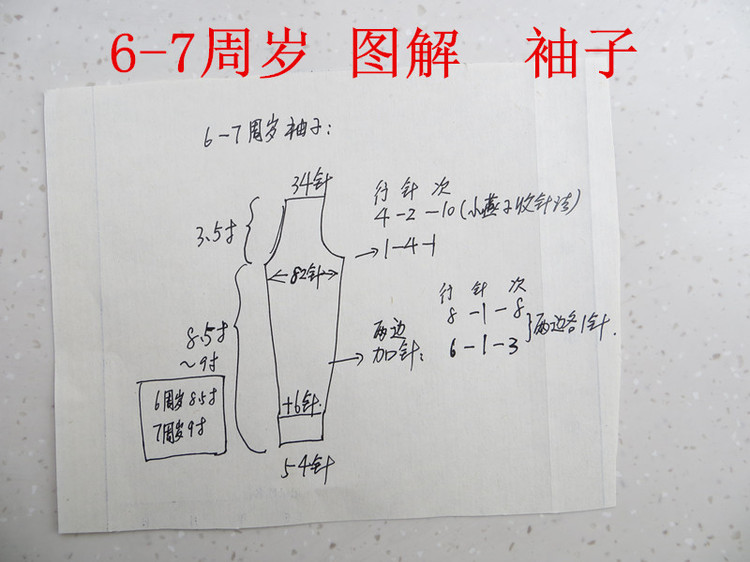 6-7周岁 图解 袖子
6-7周岁袖子:
34针
行 针 次
4-2-10(小燕子收针法)
3.5寸
1-4-1
82针
行 针 次
8-1-8
两边
加针:
6-1-3
两边各1针.
8.5寸
~9寸
6周岁8.5寸
7周岁9寸
+6针.
54针